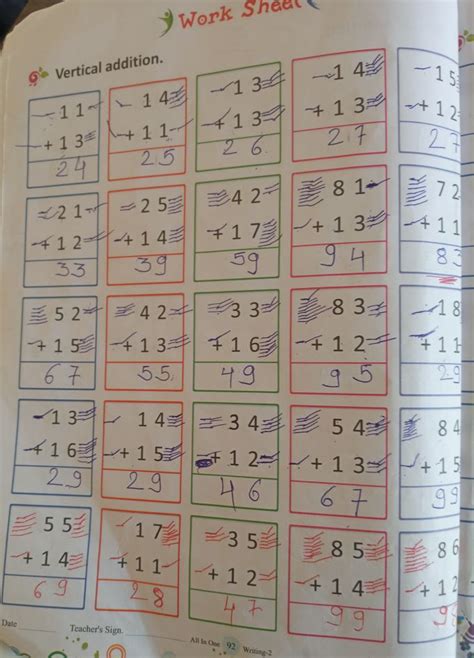 Work Sheet
Vertical addition.
11 14 13 14 15
+13 +11 +13 +13 +12
24 25 26 27 27
21 25 42 81 72
+12 +14 +17 +13 +11
33 39 59 94 83
52 42 33 83 18
+15 +13 +16 +12 +11
67 55 49 95 29
13 14 34 54 84
+16 +15 +12 +13 +15
29 29 46 67 99
55 17 35 85 86
+14 +11 +12 +14 +12
69 28 47 99
Date Teacher's Sign. All In One 92 Writing-2